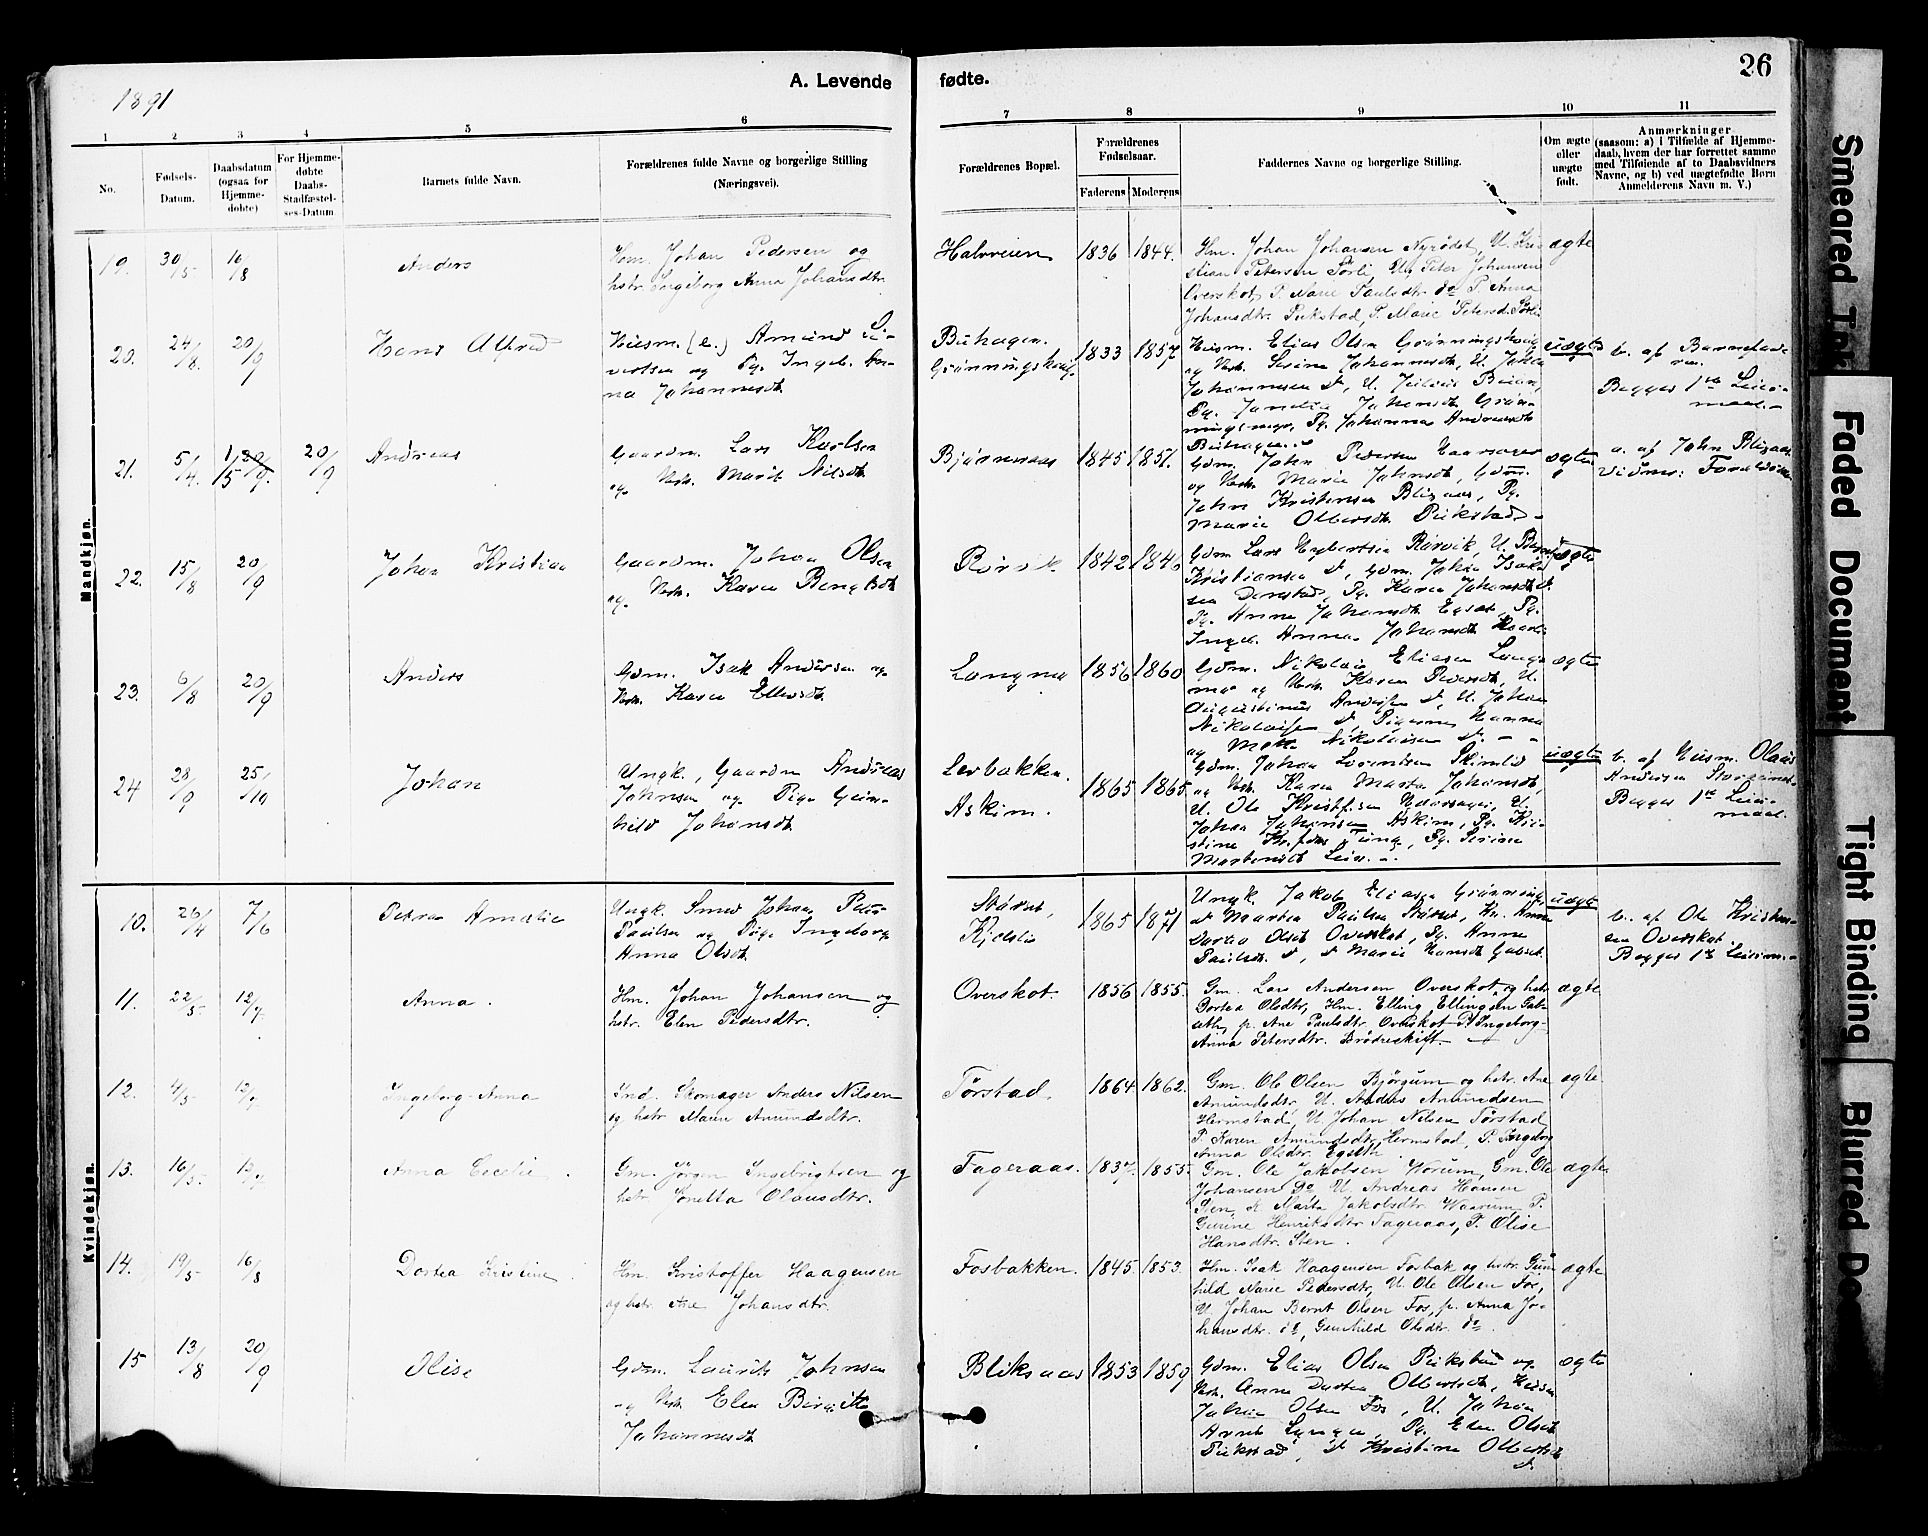 1891
A. Levende
fødte.
26
1
2
3
4
5
6
7
8
9
10
11
No.
Fødsels-
Datum.
Daabsdatum
(ogsaa for
Hjemme-
døbte)
For Hjemme-
døbte
Daabs-
Stadfæstel-
ses-Datum
Barnets fulde Navn.
Forældrenes fulde Navne og borgerlige Stilling
(Næringsvei).
Forældrenes Bopæl.
Forældrenes
Fødselsaar.
Faderens
Moderens
Faddernes Navne og borgerlige Stilling.
Om ægte
eller
uægte
født.
Anmærkninger
(saasom: a) i Tilfælde af Hjemme-
daab, hvem der har forrettet samme
med Tilføiende af to Daabsvidners
Navne, og b) ved uægtefødte Børn
Anmelderens Navn m. V.)
Mandkjøn.
19.
30/5
16/8
Anders
Hm. Johan Pedersen og
hstr. Ingeborg Anna Johansdtr.
Halvveien
1836
1844.
Hm. Johan Johansen Nyrødet, U. Kri
stian Petersen Sørli, Ug Peter Johansen
Overskot, P. Marie Paulsdtr do P. Anna
Johansdtr. Pukstad, P. Marie Petersd. Sørli
ægte
20.
24/8.
20/9
Hans Alfred
Husm. (e.) Amund Si-
vertsen og Pg. Ingeb. An-
na Johannesdt.
Buhagen.
Grønningshaug.
1833
1857
Husm. Elias Olsen Grønningshaug
og Hstr. Serine Johannesdt., U. Johan
Johannesen do, U. Julius Buhn,
uægte
b. af Barnefade
ren.
Begges 1ste Leier-
maal.
21.
5/4.
1/5
20/9.
20/9
Andreas
Gaardm. Lars Karlsen
og Hstr. Marit Nilsdt.
Bjørnenaas
1845
1851.
Buhagen.
Gdm. John Pedersen
og Hstr. Marie Johnsdt., Gdm.
John Kristensen Bligaas, Pg.
Marie Olbersdt. Pukstad
ægte
a. af John Bligaas
Vidner: Forældrene
22.
15/8
20/9
Johan Kristian
Gaardm. Johan Olsen
og Hstr. Karen Bengtsdt
Rørvik
1842
1846
Gdm. Lars Engbertsen Rørvik, U. Bernt
Kristiansen do, Gdm. Johan Isak
sen Darstad, Pg. Karen Johansdt. do
Pg. Anne Johansdt. Egset, Pg.
Ingeb. Anna Johansdt.
ægte
23.
6/8
20/9
Anders
Gdm. Isak Andersen og
Hstr. Karen Ellefsdt.
Langmo
1856
1860
Gdm. Nikolai Eliasen Lang-
mo og Hstr. Karen Pedersdt., U.
Augustinus Andersen do, U. Johan
Nikolaisen do, Pigerne Hanna
og Mette Nikolaisen do.
ægte
24
28/9
25/10
Johan
Ungk., Gaardm Andreas
Johnsen og Pige Gun-
hild Johansdt.
Leobakken.
Askim.
1865
1865.
Gdm. Johan Lorentsen Skimlid
og Hstr. Karen Marta Johansdt.,
U. Ole Kristofsen
Johan Johansen Askim, Pg. Kri-
stine Tung, Pg. Serine
Mortensdt Leir.
uægte
b. af Husm. Olaus
Andersen
Begges 1ste Leier-
maal.
Kvindekjøn.
10.
26/4
7/6
Petra Amalie
Ungk. Smed Johan Peter
Paulsen og Pige Ingeborg
Anna Olsdt.
Størset,
Kjelslie
1865
1871
Ungk. Jakob Eliasen Grønning,
do Martin Paulsen Størset, Kr. Anne
Dortea Olsdt Overskot, Pg. Anne
Paulsdt. do, do Marie Hansdt Gabset.
uægte
b. af Ole Kristen-
sen Overskot
Begges 1ste Leierm.
11.
22/5
12/7
Anna.
Hm. Johan Johansen og
hstr. Elen Pedersdtr.
Overskot.
1856
1855.
Gm. Lars Andersen Overskot og hstr
Dortea Olsdtr, Hm. Elling Ellingsen Gab-
seth, p. Ane Paulsdtr. Overskot P. Ingeborg-
Anna Petersdtr. Brødreskift.
ægte
12.
4/5
12/7
Ingeborg-Anna
Ind. Skomager Anders Nilsen
og hstr Maren Amundsdtr.
Tørstad.
1864
1862.
Gm. Ole Olsen Bjørgum og hstr. Ane
Amundsdtr, U. Anders Amundsen
Hermstad, U. Johan Nilsen Tørstad
P. Karen Amundsdtr, Hermstad, P. Ingeborg
Anna Olsdtr. Egseth.
ægte.
13.
16/5.
12/7
Anna Cecelie.
Gm. Jørgen Ingebrigtsen og
hstr. Jonetta Olausdtr.
Fageraas.
1837.
1855.
Gm. Ole Jakobsen Worum, Gm. Ole
Johansen Do U. Andreas Hansen
Marta Jakobsdtr. Waarum P.
Gurine Henriksdtr Fageraas, P. Olise
Hansdtr. Sten.
ægte
14.
19/5
16/8
Dortea Kristine.
Hm. Kristoffer Haagensen
og hstr. Ane Johansdtr.
Fosbakken.
1845.
1853.
Hm. Isak Haagensen Fosbak og hstr. Gun
hild Marie Pedersdtr, U. Ole Olsen Fos,
U. Johan Bernt Olsen Fos, p. Anna Jo-
hansdtr. do, Gunhild Olsdtr. do.
ægte
15
13/8
20/9
Olise
Gdm. Laurits Johnsen
og Hstr. Elen Birgitte
Johannesdt.
Bliksaas
1853
1859
Gdm. Elias Olsen Pukstad og
Hstr. Anne Dortea Olbertsdt., Husm
Johan Olsen Fos, U. Johan
Arnt Pg. Elen Olsdt
Pukstad, do Kristine Olbertsdt
do.
ægte
Smeared
Faded Document
Tight Binding
Blurred Do